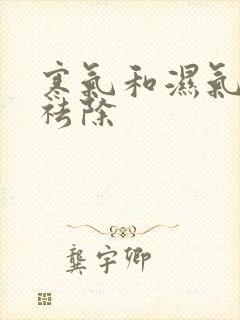 寒氣和濕氣
祛除
龔宇卿